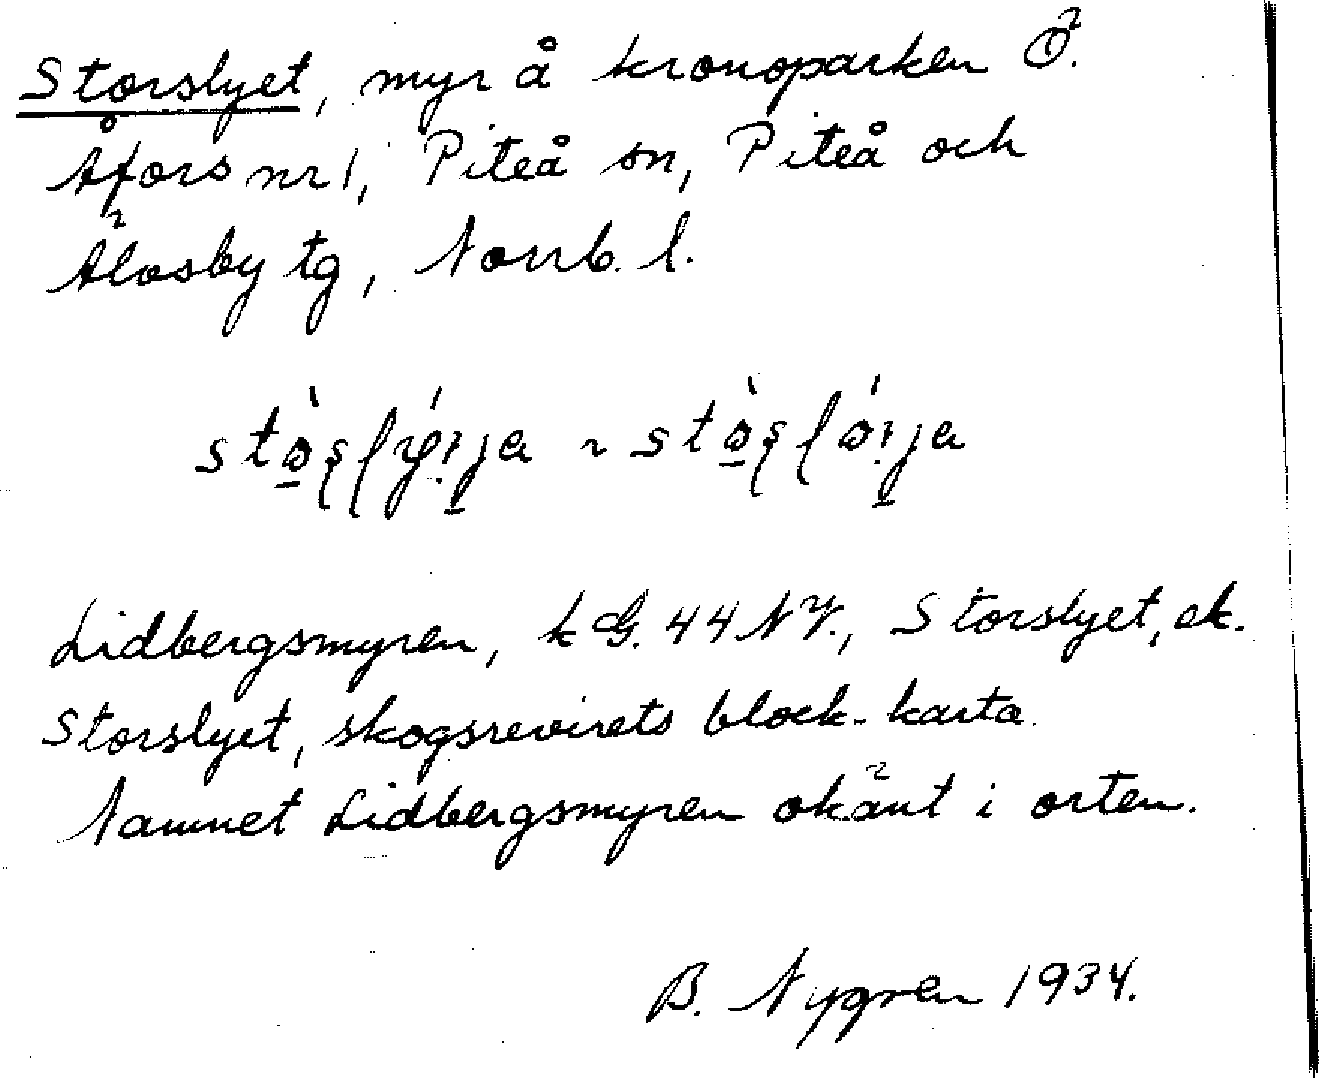 Storslyet, myr å kronoparken Ö.
Åfors nr 1, Piteå sn, Piteå och
Älvsby tg, Norrb. l.
Lidbergsmyren, k G. 44 NV., Storslyet, ek.
Storslyet, skogsrevirets block-karta.
Namnet Lidbergsmyren okänt i orten.
B. Nygren 1934.